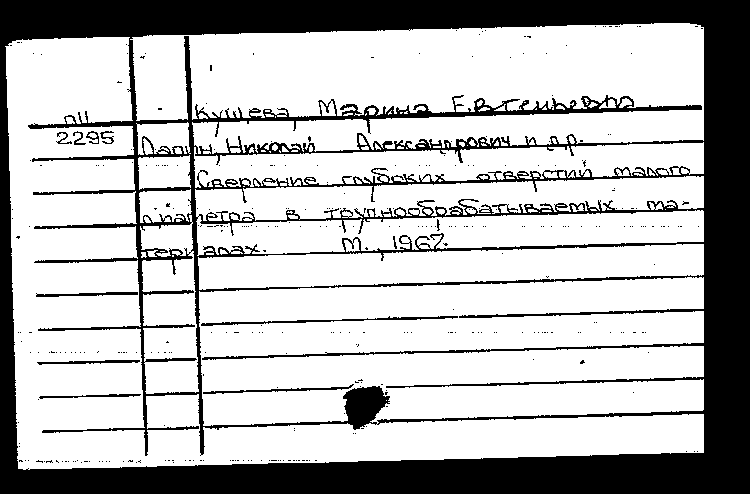 Кущева, Марина Евгеньевна
П11
2295
Лапин, Николай Александрович и др.
Сверление глубоких отверстий малого
диаметра в труднообрабатываемых ма-
териалах. М., 1967.